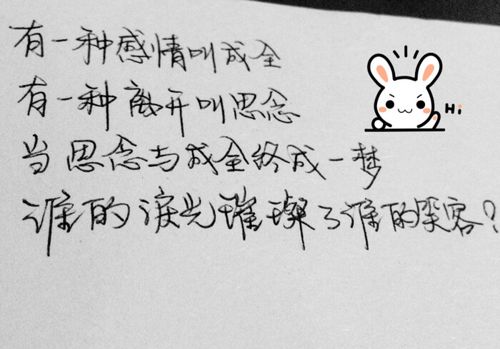 有一种感情叫成全
有一种离开叫思念
当思念与成全终成一梦
谁的泪光璀璨了谁的笑容？
Hi